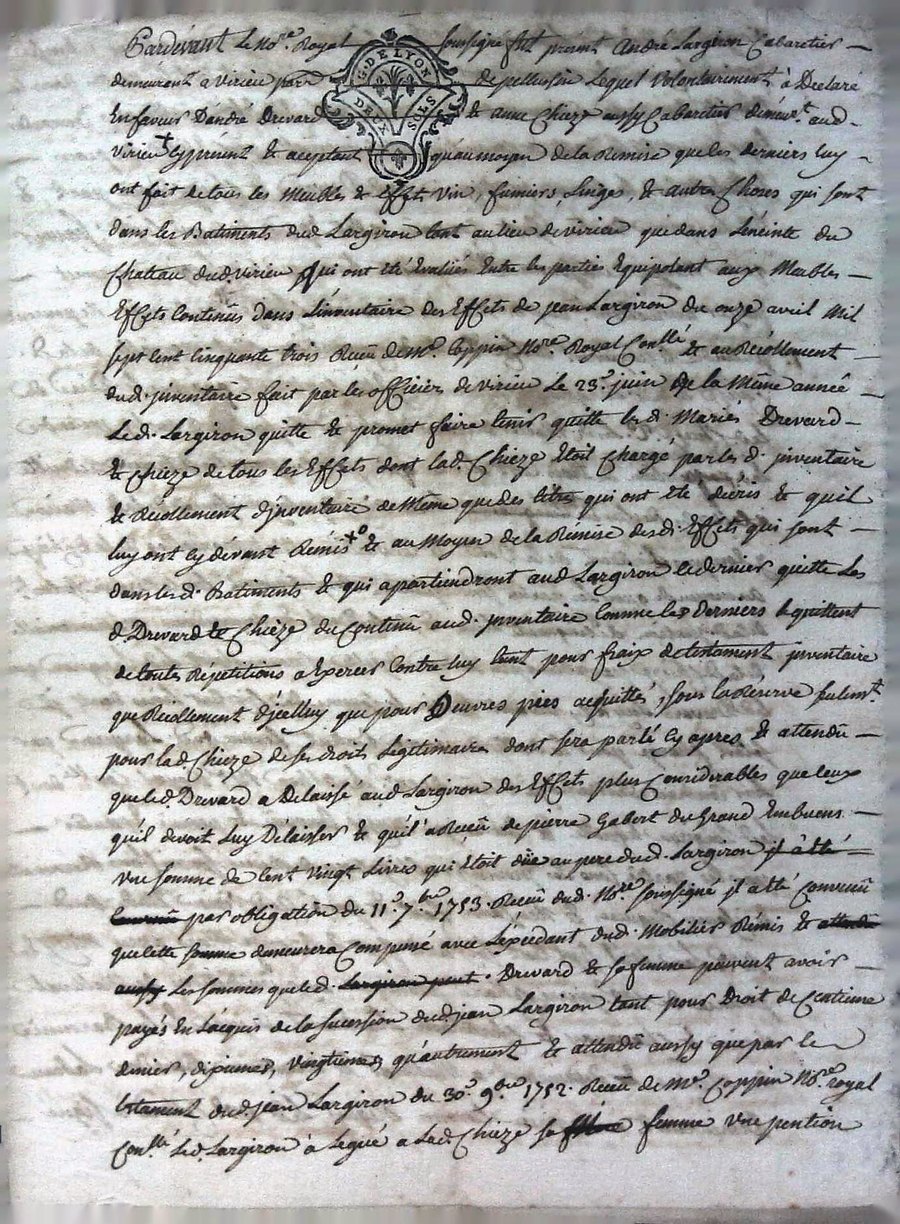 Pardevant Le No.re Royal soussigné fut présent André Largiron Cabaretier
demeurant a virieu parr de pellussin Lequel volontairement à Declaré
En faveur D'andré Drevard & anne Chieze aussy Cabaretier demeur.t aud.
virieu + Cy present & aceptant qu'au moyen de la Remise que les derniers luy
ont fait de tous les Meubles & Effets vin, fumiers, Linges, & autres Choses qui sont
dans les Batiments dud. Largiron tant au lieu de virieu que dans L'enceinte du
Chateau dud. virieu Qui ont été Evalués Entre les partie Equipolant aux Meubles
Effets Contenus dans L'inventaire des Effets de jean Largiron du onze avril Mil
sept Cent Cinquante trois Receu de M.e Coppin No.re Royal Con.llé & au Récollement
dud. jnventaire fait par les officiers de virieu Le 23.e juin de la Même année
Led. Largiron quitte & promet faire tenir quitte les d. Mariés Drevard
& Chieze de tous les Effets dont lad. Chieze Etoit Chargé par les d. jnventaire
& Récollement d'jnventaire de Même que des titres qui ont été décris & qu'il
luy ont Cy devant Remis +o & au Moyen de la Rémise desd. Effets qui sont
dans lesd. Batiments & qui apartiendront aud. Largiron Ce dernier quitte Les
d. Drevard & Chieze du Contenû aud. jnventaire Comme les Derniers le quittent
de toutes Répetitions a Exercer Contre luy tant pour fraix de testament jnventaire
que Récollement d'jcelluy que pour Oeuvres pies acquittés, sous la Réserve sulem.t
pour lad. Chieze de ses droit Légitimaires dont sera parlé Cy apres & attendû
que led. Drevard a Delaissé aud. Largiron des Effets plus Considerables que Ceux
qu'il devoit Luy Délaisser & qu'il a Receû de pierre Gabert du Grand Embuens
vne somme de Cent vingt Livres qui Etoit dûe au pere dud. Largiron jl à été
Convenu par obligation du 11.e 7.bre 1753. Receû dud. No.re soussigné jl a été Convenû
que Cette somme demeurera Compensé avec L'éxcédant dud. Mobilier Rémis & attendû
aussy Les sommes que led. Largiron peut. Drevard & sa femme peuvent avoir
payés En L'acquis de la succession dud. jean Largiron tant pour Droit de Centieme
denier, dixiemes, vingtiemes, qu'autrement & attendû aussy que par le
testament dud. jean Largiron du 30.e 9.bre 1752. Receû de M.e Coppin No.re royal
Con.llé Led. Largiron à Legué a Lad. Chieze sa femme vne pention